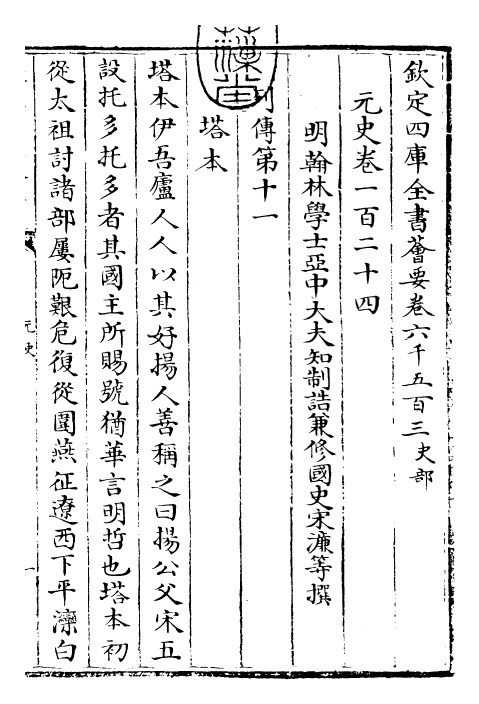 欽定四庫全書薈要卷六千五百三史部
元史卷一百二十四
明翰林學士亞中大夫知制誥兼修國史宋濂等撰
列傳第十一
塔本
塔本伊吾廬人人以其好揚人善稱之曰揚公父宋五
設托多托多者其國主所賜號猶華言明哲也塔本初
從太祖討諸部屢阨艱危復從圍燕征遼西下平灤白
元史
一